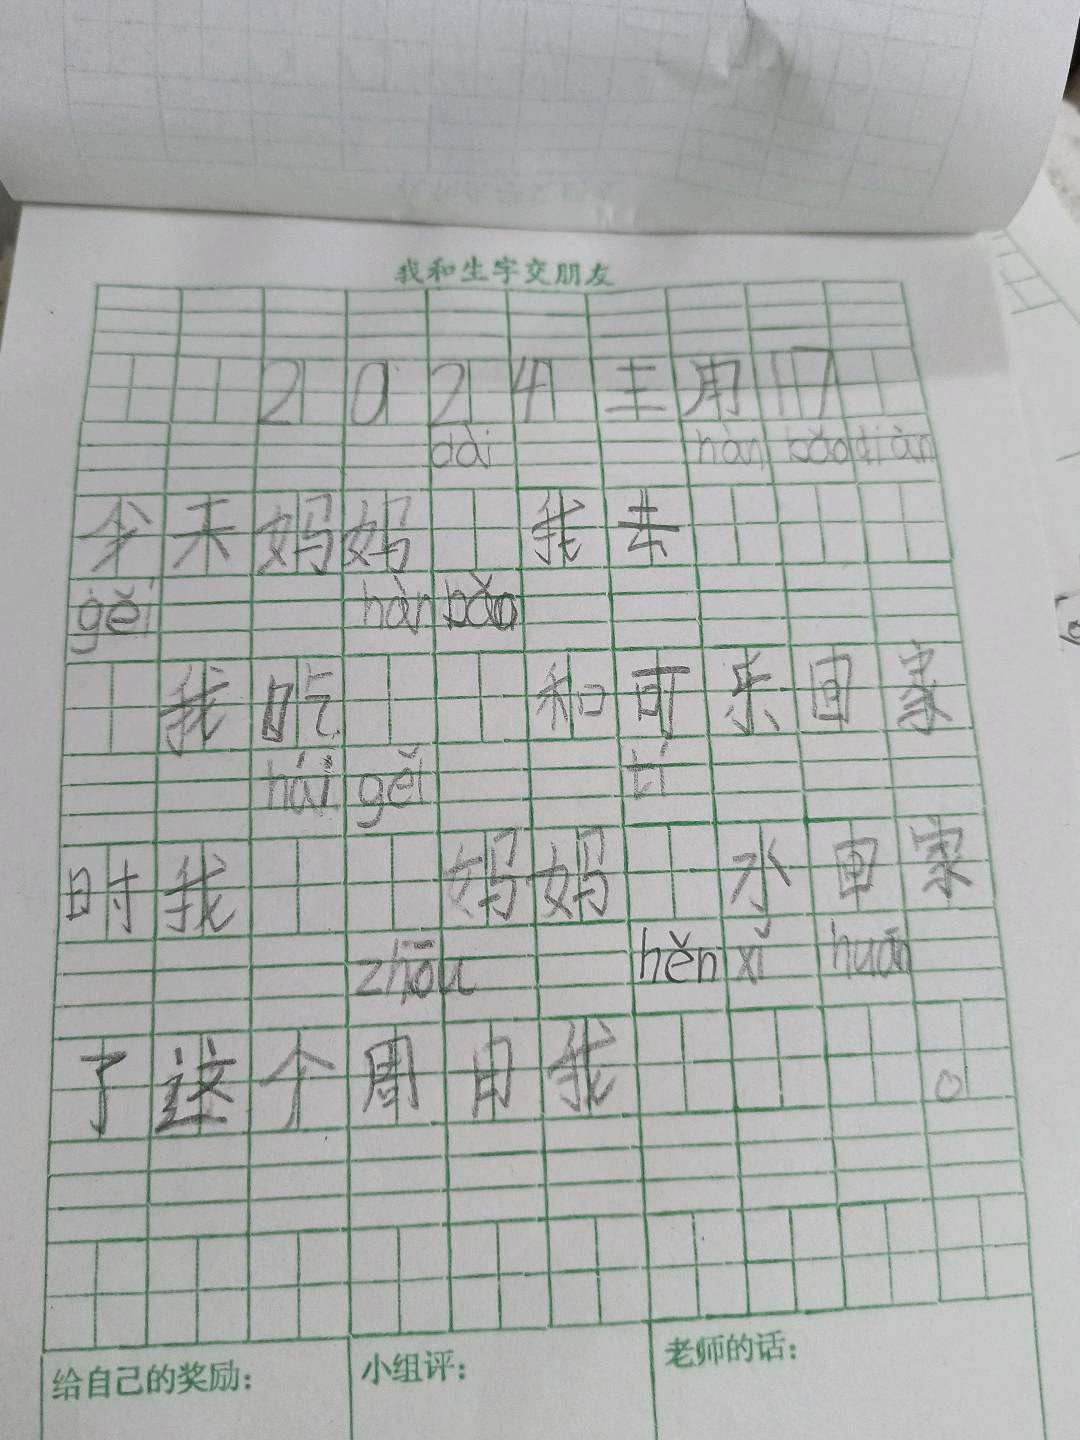 我和生字交朋友
2024主用17
dài hàn bǎo diàn
今天妈妈 我去
gěi hàn bǎo
我吃 和可乐回家
hái gěi tí
时我 妈妈 水回家
zhōu hěn xǐ huān
了这个周日我 。
给自己的奖励: 小组评: 老师的话: